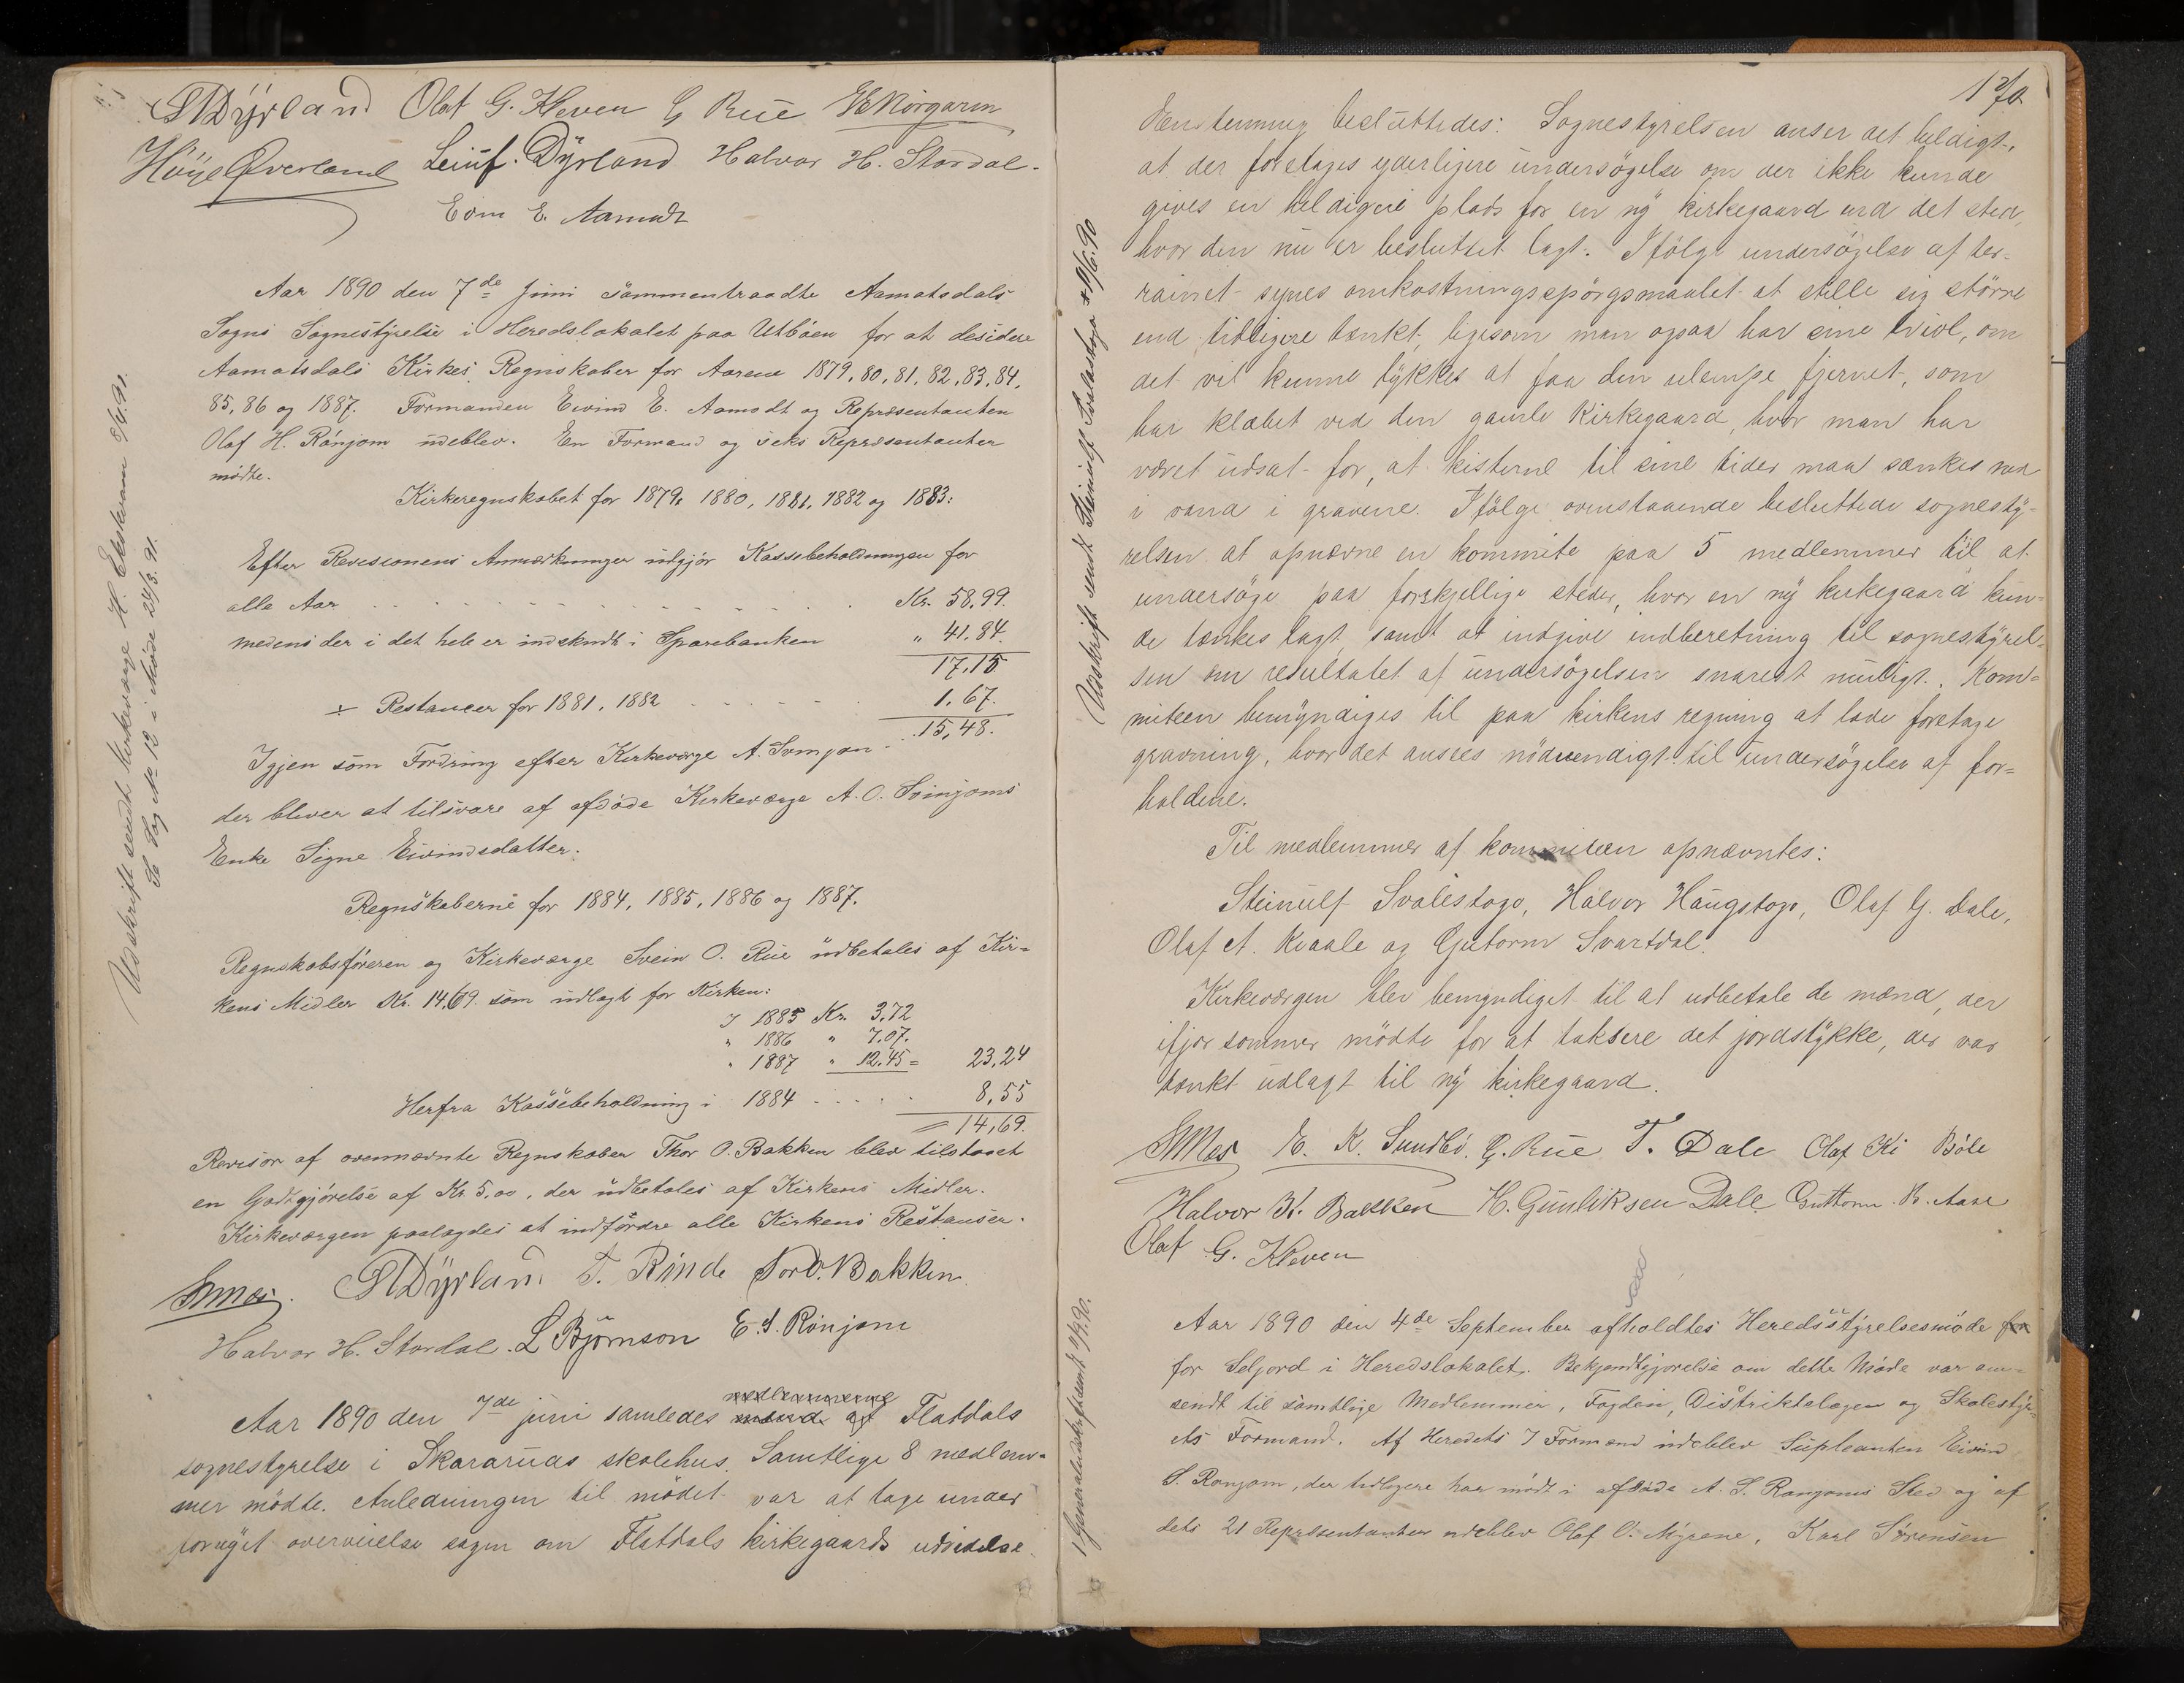 Dyrland Olaf G. Kleven G Rue
Høye Øverland Leiuf. Dyrland Halvor H. Stordal.
E. Aamodt
Aar 1890 den 7de Juni sammentraadte Aamotsdals
Sogns Sognestyrelse i Heredslokalet paa Utbøen for at desidere
Aamotsdals Kirkes Regnskaber for Aarene 1879, 80, 81, 82, 83, 84,
85, 86 og 1887. Formanden Eivind E. Aamodt og Repræsentanten
Olaf H. Rönjom udeblev. En Formand og seks Repræsentanter
mødte.
Kirkeregnskabet for 1879, 1880, 1881, 1882 og 1883:
Efter Revisionens Anmærkninger udgjør Kassebeholdningen for
alle Aar . . . . . Kr. 58,99.
medens der i det hele er indskudt i Sparebanken " 41.84.
17.15
÷ Restancer for 1881, 1882 . . . . . 1.67.
15,48.
Igjen som Fordring efter Kirkeværge A. Svinjom
der bliver at tilsvare af afdøde Kirkeværge A. O. Svinjoms
Enke Signe Eivindsdatter.
Regnskaberne for 1884, 1885, 1886 og 1887.
Regnskabsføreren og Kirkeværge Svein O. Rue udbetales af Kir=
kens Midler Kr. 14,69. som udlagt for Kirken:
I 1885 Kr. 3,72
" 1886 " 7.07.
" 1887 " 12.45 = 23,24
Herfra Kassebeholdning i 1884 . . . . . 8,55
= 14,69.
Revisor af ovennævnte Regnskaber Thor O. Bakken blev tilstaaet
en Godtgjørelse af Kr 5,00, der udbetales af Kirkens Midler.
Kirkeværgen paalagdes at indfordre alle Kirkens Restanser.
Dyrland T. Rinde Tor O. Bakken
Halvor H. Stordal. L Björnson E. S. Rönjom
medlemmerne
Aar 1890 den 7de juni samledes mænd af Flatdals
sognestyrelse i Skararuas skolehus. Samtlige 8 medlem=
mer mødte. Anledningen til mødet var at tage under
fornyet overveielse sagen om Flatdals kirkegaards udvidelse.
Udskrift sendt Kirkeværge H. Ekskaran
Se Sag No 12 i Møde 24/3. 91.
Udskrift sendt Steinulf Svalestoga
Enstemmig besluttedes: Sognestyrelsen anser det heldigt,
at der foretages yderligere undersøgelse om der ikke kunde
gives en heldigere plads for en ny kirkegaard end det sted,
hvor den nu er besluttet lagt. Ifölge undersøgelse af ter=
rainet synes omkostningsspörgsmaalet at stille sig större
end tidligere tænkt, ligesom man ogsaa har sine tvivl, om
det vil kunne lykkes at faa den ulempe fjernet, som
har klæbet ved den gamle Kirkegaard, hvor man har
været udsat for, at kisterne til sine tider maa sænkes ned
i vand i gravene. Ifölge ovenstaaende besluttede sognesty=
relsen at opnævne en kommite paa 5 medlemmer til at
undersöge paa forskjellige steder, hvor en ny kirkegaard kun=
de tænkes lagt, samt at indgive indberetning til sognestyrel=
sen om resultatet af undersögelsen snarest muligt. Kom=
miteen bemyndiges til paa kirkens regning at lade foretage
gravning, hvor det ansees nödvendigt til undersögelse af for=
holdene.
Til medlemmer af kommiteen opnævntes:
Steinulf Svalestoga, Halvor Haugstoga, Olaf G. Dale,
Olaf A. Kvaale og Gutorm Svartdal.
Kirkeværgen blev bemyndiget til at udbetale de mænd, der
ifjor sommer mödte for at taksere det jordstykke, der var
tænkt udlagt til ny kirkegaard.
E. K. Sundbö. G. Rue T. Dale Olaf Böle
Halvor Bakken H. Gunliksen Dale Guttorm B. Aase
Olaf G. Kleven
Aar 1890 den 4de September afholdtes Heredsstyrelsesmöde
for Seljord i Heredslokalet. Bekjendtgjørelse om dette Møde var om=
sendt til samtlige Medlemmer, Fogden, Distriktslægen og Skolesty=
ets Formand. Af Heredets 7 Formænd udeblev Supleanten Eivind
S. Ronjom, der tidligere har mødt i afdøde A. S. Ronjoms Sted og af
dets 21 Repræsentanter udeblev Olaf O. Myrene, Karl Sørensen